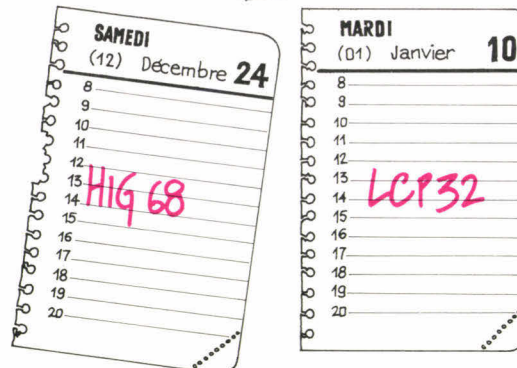 SAMEDI
(12) Décembre 24
8
9
10
11
12
13
14
15
16
17
18
19
20
HIG 68
MARDI
(01) Janvier 10
8
9
10
11
12
13
14
15
16
17
18
19
20
LCP32